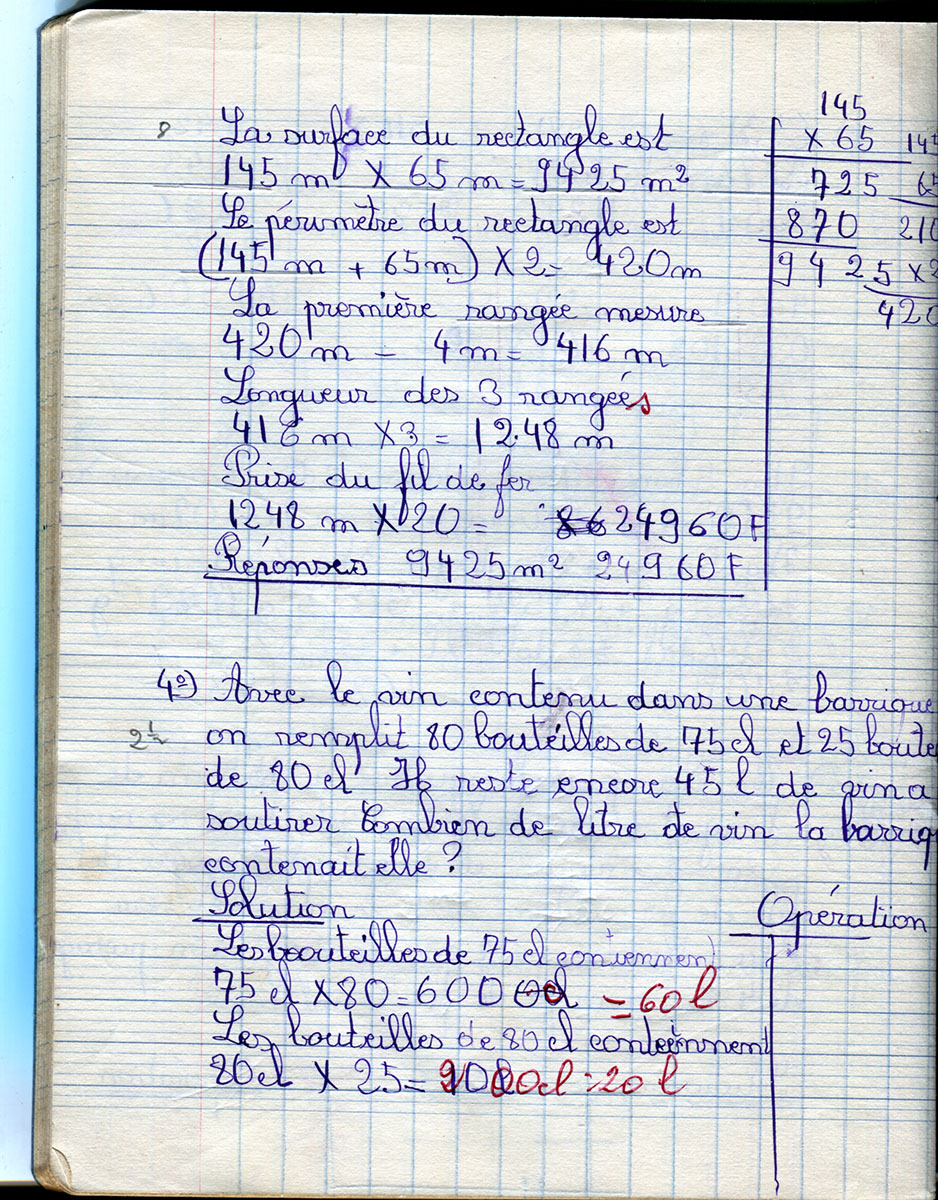 8
La surface du rectangle est
145 m × 65 m = 9425 m²
Le périmètre du rectangle est
(145 m + 65m) × 2 = 420m
La première rangée mesure
420 m - 4 m = 416 m
Longueur des 3 rangées
416 m ×3 = 1248 m
Prise du fil de fer
1248 m × 20 = 24960F
Réponses 9425 m² 24960F
145
× 65
725
870
9425
145
65
210
×2
420
4º) Avec le vin contenu dans une barrique
2½
on remplit 80 bouteilles de 75 cl et 25 boute
de 80 cl Il reste encore 45 l de vin a
soutirer Combien de litre de vin la barriq
contenait elle ?
Solution
Opération
Les boouteilles de 75 cl contiennent
75 cl × 80 = 6000 cl = 60 l
Les bouteilles de 80 cl contiennent
80cl × 25 = 2000cl = 20 l